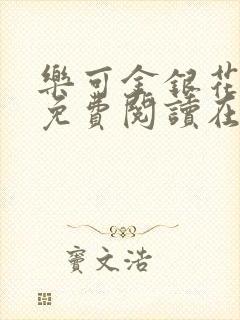 樂可金銀花
免費閱讀在
竇文浩